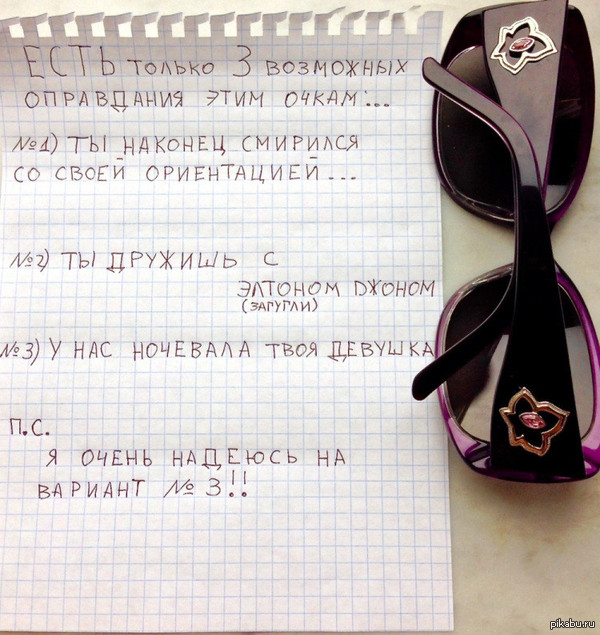 ЕСТЬ ТОЛЬКО 3 ВОЗМОЖНЫХ
ОПРАВДАНИЯ ЭТИМ ОЧКАМ:...
№1) ТЫ НАКОНЕЦ СМИРИЛСЯ
СО СВОЕЙ ОРИЕНТАЦИЕЙ...
№2) ТЫ ДРУЖИШЬ С
ЭЛТОНОМ ДЖОНОМ
(ЗАГУГЛИ)
№3) У НАС НОЧЕВАЛА ТВОЯ ДЕВУШКА
П.С.
Я ОЧЕНЬ НАДЕЮСЬ НА
ВАРИАНТ №3!!
pikabu.ru